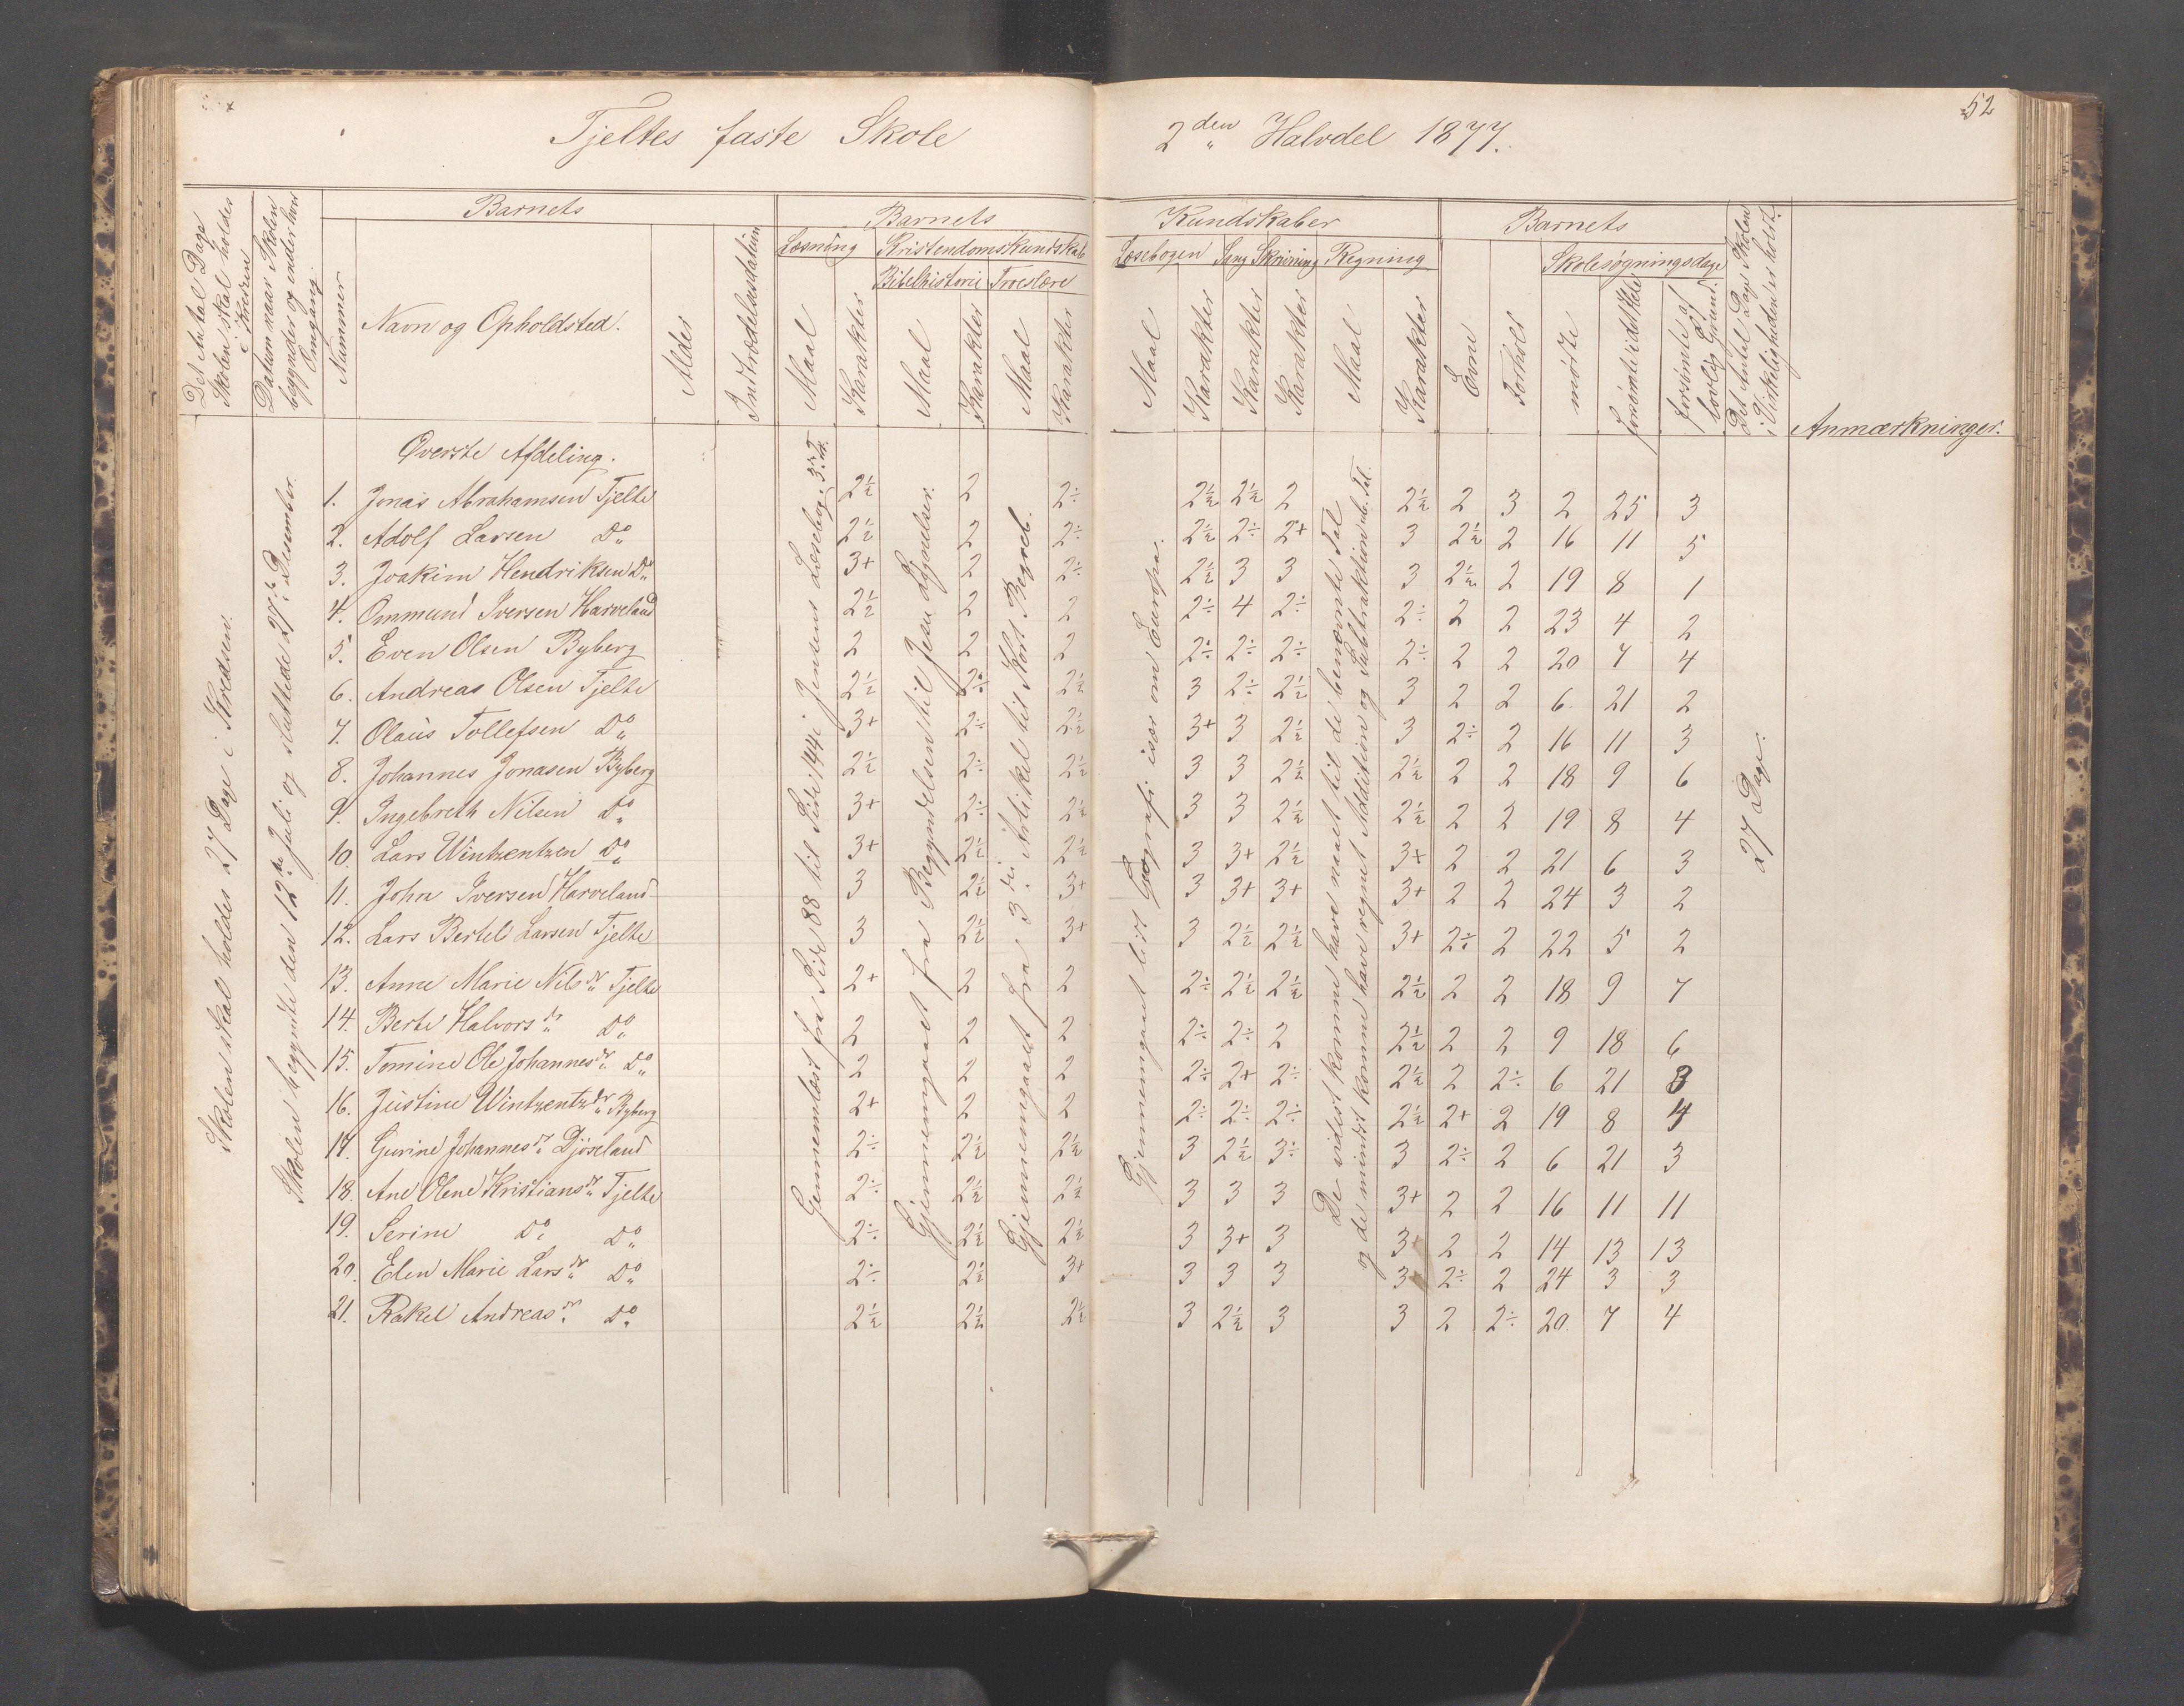 52
Tjeltes faste Skole 2den Halvdel 1877.
Det Antal Dage Skolen skal holdes i Kredsen
Datum naar Skolen begynder og ender hver Omgang
Barnets
Nummer
Navn og Opholdsted.
Alder
Indtrædelsesdatum
Barnets Kundskaber
Læsning
Maal
Karakter
Kristendomskundskab
Bibelhistorie
Maal
Karakter
Troeslære
Maal
Karakter
Læsebogen
Maal
Karakter
Sang
Karakter
Skrivning
Karakter
Regning
Maal
Karakter
Barnets
Evne
Forhold
Skolesøgningsdage
mødte
forsømte i det Hele
forsømte af lovlig Grund.
Det Antal Dage Skolen i Virkeligheden er holdt.
Anmærkninger.
Skolen skal holdes 27 Dage i Kredsen.
Skolen begyndte den 12te Juli og sluttede 27de Desember.
Gjennemlæst fra Side 88 til Side 144 i Jensens Læsebog, 3die
Gjennemgaaet fra Begyndelsen til Jesu Lignelser.
Gjennemgaaet fra 3die Artikel til Kort Begreb.
Gjennemgaaet lidt Geografi især om Europa.
De videst komne have naaet til de benævnte Tal
og de mindst komne have regnet Addition og Subtraktion
27 Dage.
Øverste Afdeling.
1. Jonas Abrahamsen Tjelte 2½ 2 2÷ 2½ 2½ 2 2½ 2 3 2 25 3
2. Adolf Larsen Do 2½ 2 2÷ 2½ 2÷ 2+ 3 2½ 2 16 11 5
3. Joakim Hendriksen Do 3+ 2 2÷ 2½ 3 3 3 2½ 2 19 8 1
4. Ommund Iversen Harveland 2½ 2 2 2÷ 4 2÷ 2÷ 2 2 23 4 2
5. Even Olsen Byberg 2 2 2 2÷ 2÷ 2÷ 2÷ 2 2 20 7 4
6. Andreas Olsen Tjelte 2½ 2÷ 2½ 3 2÷ 2½ 3 2 2 6 21 2
7. Olaus Tollefsen Do 3+ 2÷ 2½ 3+ 3 2½ 3 2÷ 2 16 11 3
8. Johannes Jonasen Byberg 2½ 2÷ 2½ 3 3 2½ 2½ 2 2 18 9 6
9. Ingebreth Nilsen Do 3+ 2÷ 2½ 3 3 2½ 2½ 2 2 19 8 4
10. Lars Wintzentzen Do 3+ 2½ 2½ 3 3+ 2½ 3+ 2 2 21 6 3
11. John Iversen Harveland 3 2½ 3+ 3 3+ 3+ 3+ 2 2 24 3 2
12. Lars Bertel Larsen Tjelte 3 2½ 3+ 3 2½ 2½ 3+ 2÷ 2 22 5 2
13. Anne Marie Nilsdr Tjelte 2+ 2 2 2÷ 2½ 2½ 2½ 2 2 18 9 7
14. Berte Halvorsdr Do 2 2 2 2÷ 2÷ 2 2½ 2 2 9 18 6
15. Tomine Ole Johannesdr Do 2 2 2 2÷ 2+ 2÷ 2½ 2 2÷ 6 21 3
16. Justine Wintzentzdr Byberg 2+ 2 2 2÷ 2÷ 2÷ 2½ 2+ 2 19 8 4
17. Gurine Johannesdr Djøseland 2÷ 2½ 2½ 3 2½ 3÷ 3 2÷ 2 6 21 3
18. Ane Olene Kristiansdr Tjelte 2÷ 2½ 2½ 3 3 3 3+ 2 2 16 11 11
19. Serine Do Do 2÷ 2½ 2½ 3 3+ 3 3+ 2 2 14 13 13
20. Elen Marie Larsdr Do 2÷ 2½ 3+ 3 3 3 3+ 2÷ 2 24 3 3
21. Rakel Andreasdr Do 2½ 2½ 2½ 3 2½ 3 3 2 2÷ 20 7 4